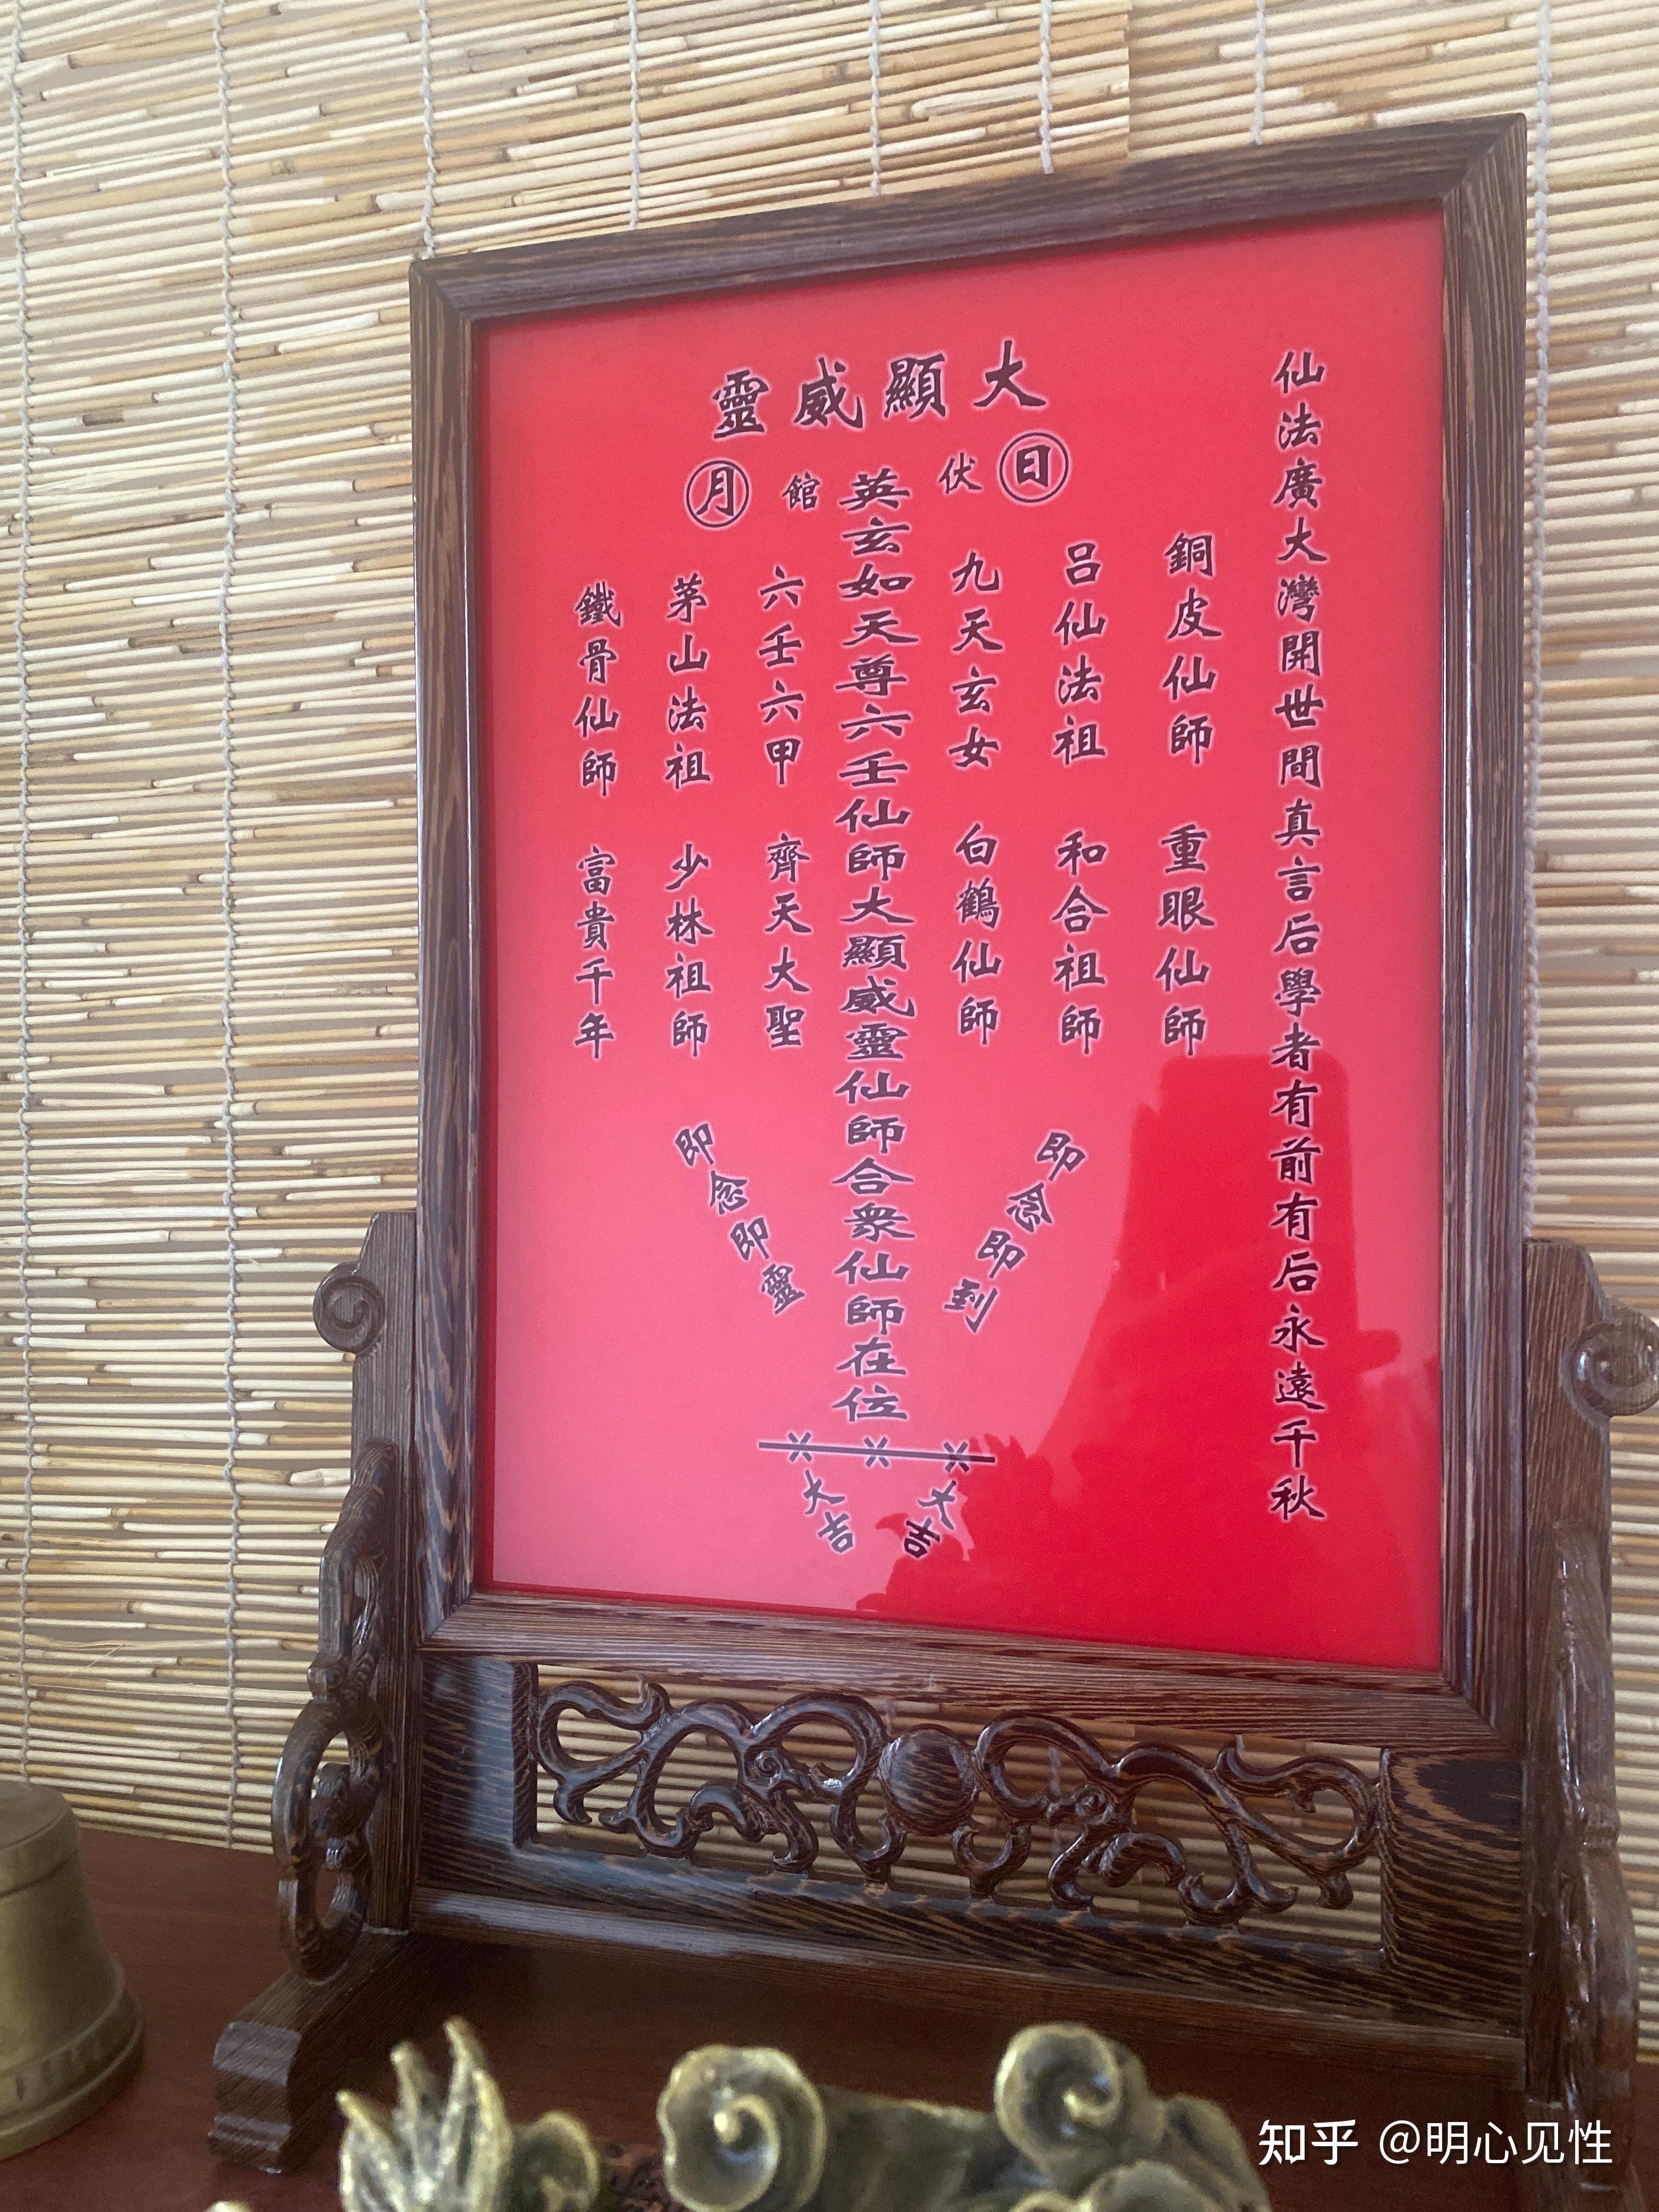 仙法廣大灣開世間真言后學者有前有后永遠千秋
大顯威靈
日
月
伏
館
銅皮仙師
重眼仙師
呂仙法祖
和合祖師
九天玄女
白鶴仙師
英玄如天尊六壬仙師大顯威靈仙師合衆仙師在位
六壬六甲
齊天大聖
茅山法祖
少林祖師
鐵骨仙師
富貴千年
即念即到
即念即靈
大吉
大吉
知乎 @明心见性